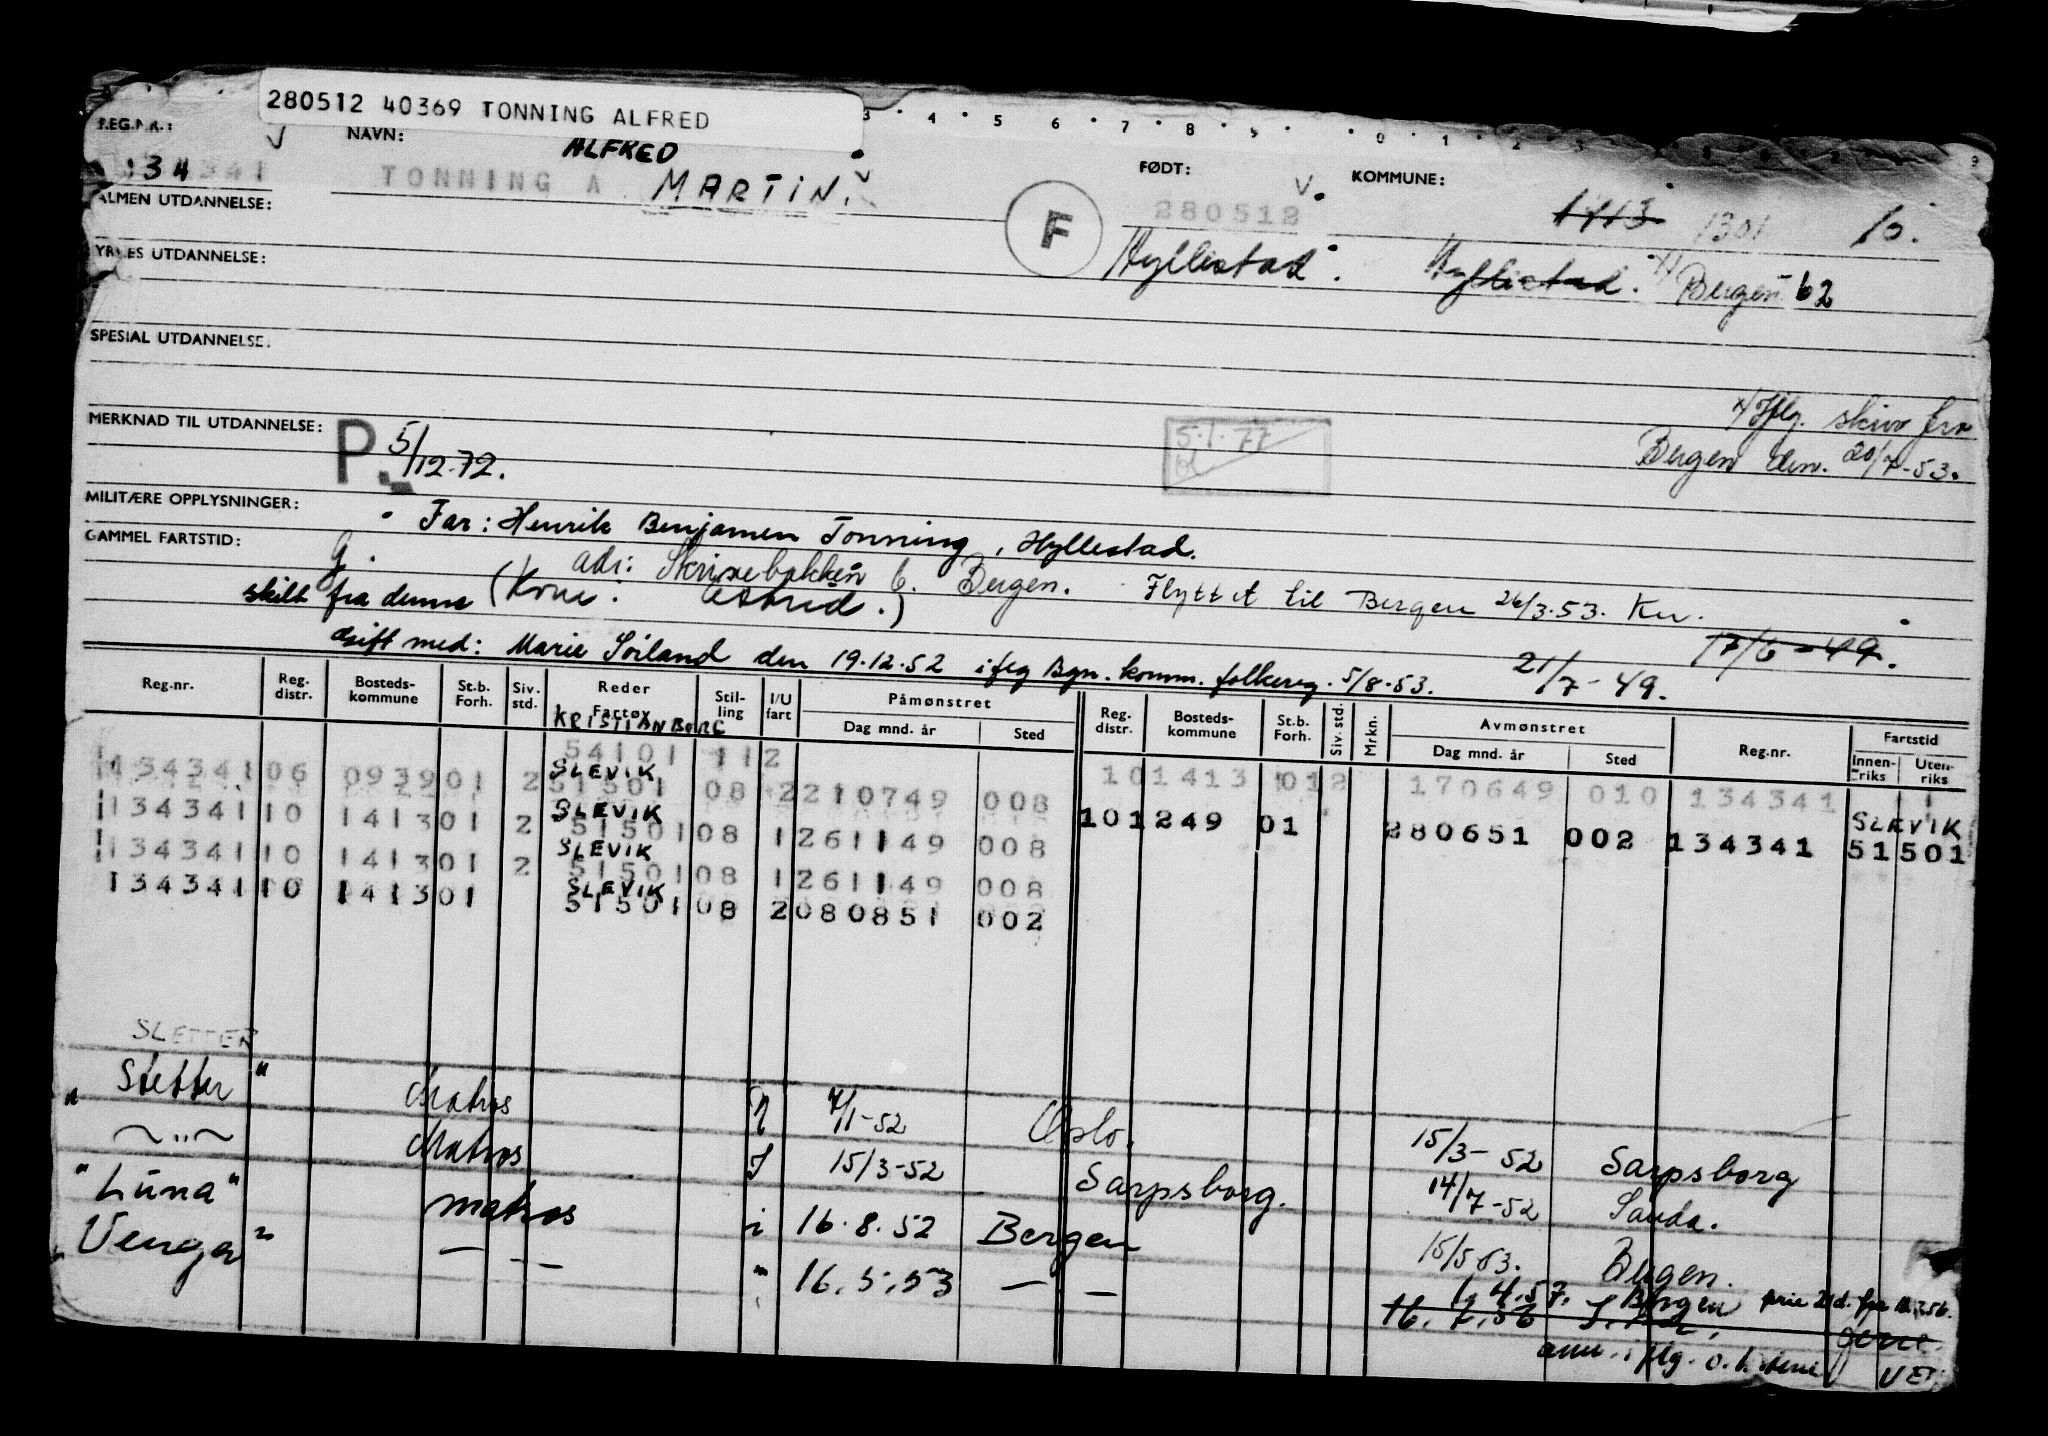 280512 40369 TONNING ALFRED
REG.NR.: NAVN: ALFRED FØDT: KOMMUNE:
134341 TONNING A MARTIN. 280512 1413 1301 10.
ALMEN UTDANNELSE: F Hyllestad. Hyllestad. x) Bergen 62
YRKES UTDANNELSE:
SPESIAL UTDANNELSE:
x) Iflg. skriv fra
Bergen den. 20/7-53.
MERKNAD TIL UTDANNELSE: P. 5/12-72. 5.1.77
MILITÆRE OPPLYSNINGER: Far: Henrik Benjamen Tonning, Hyllestad.
GAMMEL FARTSTID: G. adr: Skrivebakken 6. Bergen. Flyttet til Bergen 26/3.53.
skilt fra denne (Kone: Astrid.)
17/6-49.
gift med: Marie Soiland den 19.12.52 iflg Bgn. komm. folkereg. 5/8-53. 21/7-49.
Reg.nr. Reg. distr. Bosteds-kommune St.b. Forh. Siv. std. Reder Fartøy Stil-ling I/U fart Påmønstret Dag mnd. år Sted Reg. distr. Bosteds-kommune St.b. Forh. Siv. std. Mrkn. Avmønstret Dag mnd. år Sted Reg.nr. Fartstid Innen-riks Uten-riks
KRISTIANBORG
54101 112
134341 06 0939 01 2 SLEVIK 51501 08 2 210749 008 10 1413 01 2 170649 010 134341
134341 10 1413 01 2 SLEVIK 51501 08 1 261149 008 10 1249 01 280651 002 134341 SLEVIK 51501
134341 10 1413 01 2 SLEVIK 51501 08 1 261149 008
134341 10 1413 01 SLEVIK 51501 08 2 080851 002
SLETTER
"Sletter" Matros 7/1-52 Oslo. 15/3-52 Sarpsborg
~"~ Matros I 15/3-52 Sarpsborg. 14/7-52 Sauda.
"Luna" matros i 16.8.52 Bergen 15/5 53. Bergen.
"Venger" — — " 16.5.53 — — 4.57. Bergen
16.7.56
ann. iflg.